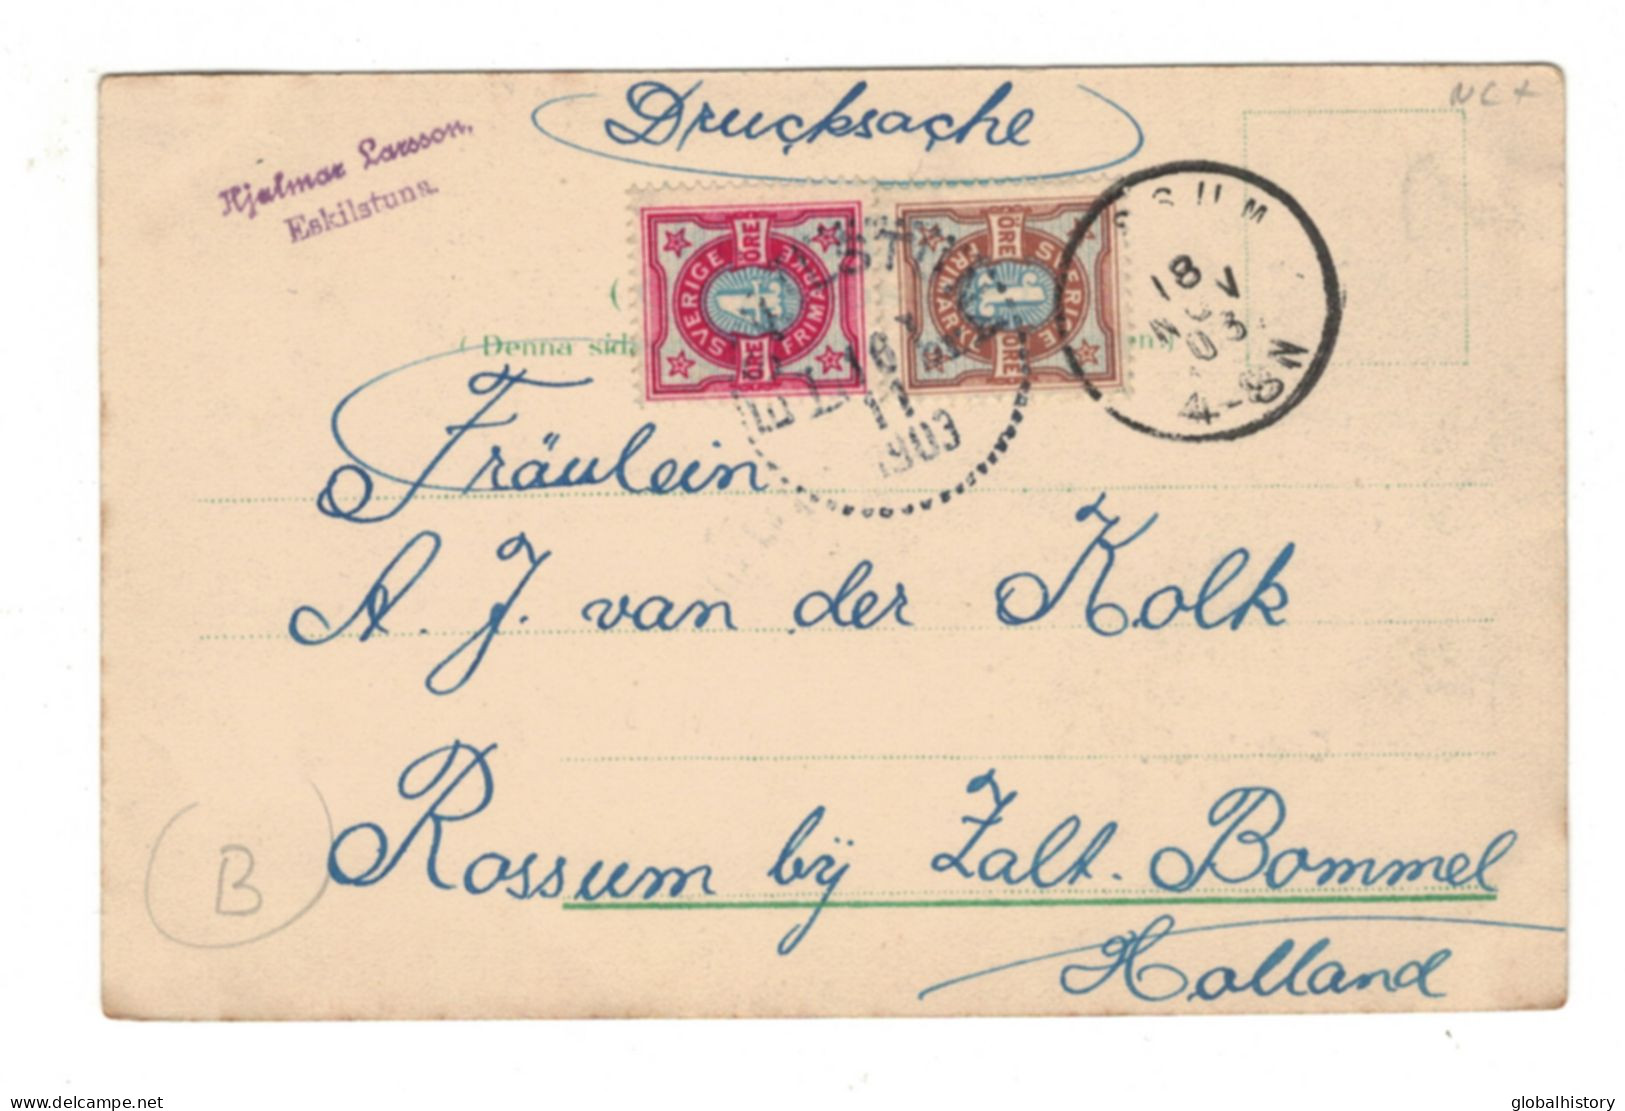 Druçksaçhe
NC+
Hjalmar Larsson,
Eskilstuna.
SVERIGE FRIMÄRKE 4 ÖRE ÖRE
SVERIGE FRIMÄRKE 1 ÖRE ÖRE
SSUM
18 NOV 03
4-8N
(Denna sida
18
11
1903
Fräulein
A. J. van der Kolk
Rossum bÿ Zalt. Bommel
Holland
B
www.delcampe.net
globalhistory